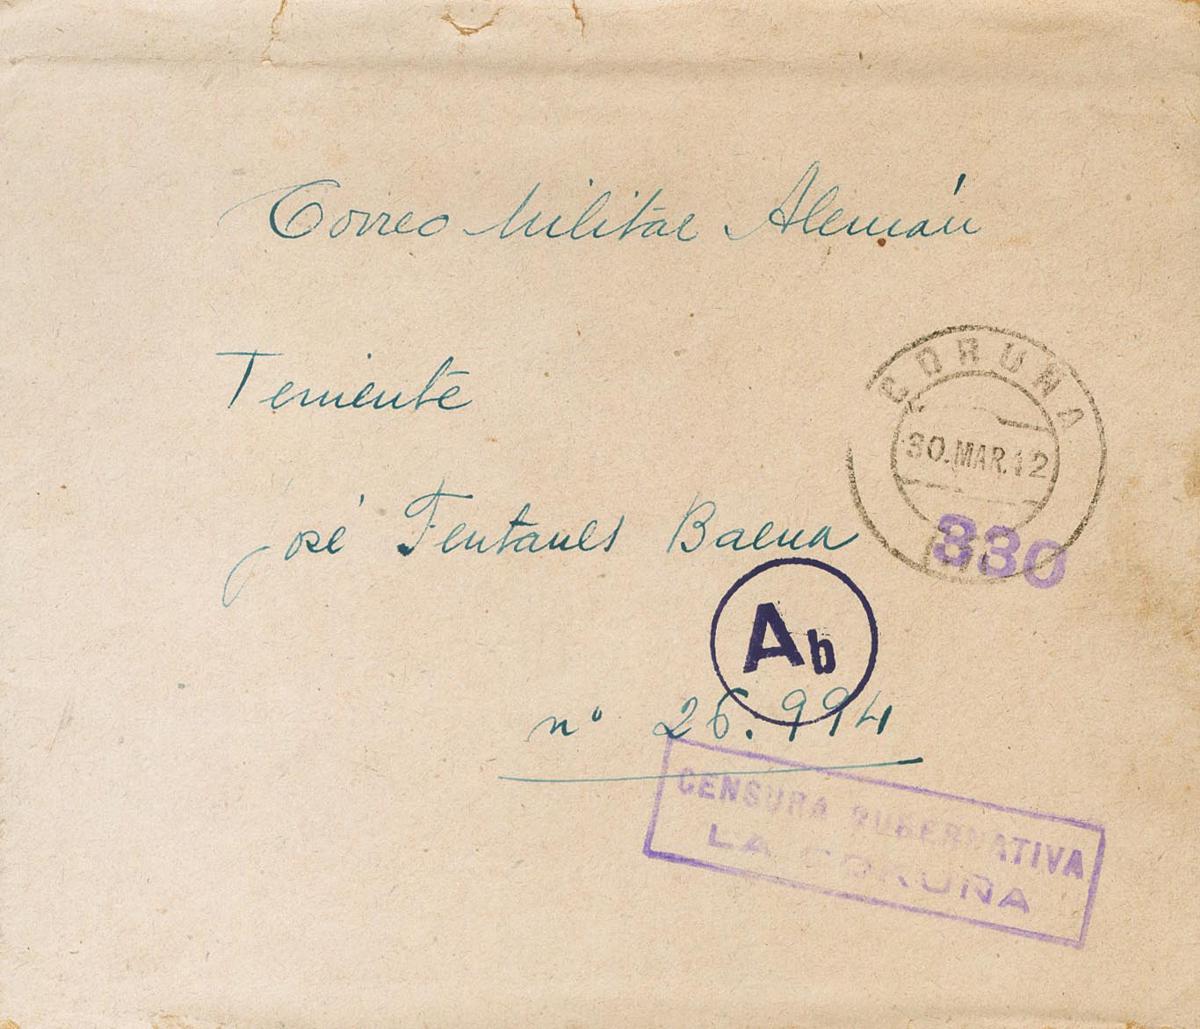 Correo Militar Alemán
Teniente
CORUÑA
30.MAR.42
José Fentanes Baena
330
Ab
nº 26.994
CENSURA GUBERNATIVA
LA CORUÑA